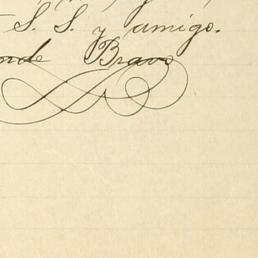 S. S. y amigo.
nde Bravo